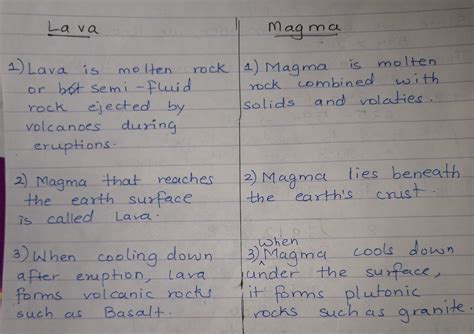 Lava
1) Lava is molten rock
or hot semi-fluid
rock ejected by
volcanoes during
eruptions.
2) Magma that reaches
the earth surface
is called Lava.
3) When cooling down
after eruption, lava
forms volcanic rocks
such as Basalt.
Magma
1) Magma is molten
rock combined with
solids and volaties.
2) Magma lies beneath
the earth's crust.
When
3) Magma cools down
under the surface,
it forms plutonic
rocks such as granite